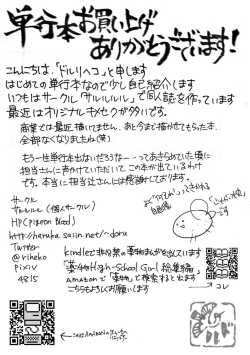 単行本お買い上げ
ありがとうございます！
こんにちは、「ドルリヘコ」と申します
はじめての単行本なので少し自己紹介します
いつもはサークル「サルルルル」で同人誌を作っています
最近はオリジナル
が多いです。
商業では最近、描いてません、あと今まで描かせてもらった本、
全部なくなりましたね(笑)
もう一生単行本はないだろうなー…ってあきらめていた頃に
担当さんに声かけていただいて この本が出ているわけ
です。本当に担当さんには感謝しております。
サークル
サルルルル (個人サークル)
HP(Pigeon Blood)
http://haruka.saiin.net/~doru
Twitter
@riheko
pixiv
4815
自画像
こんな
です
kindleで非公式の薬物まんがを出しています
「薬物High-School Girl 総集編」
amazonで「薬物」で検索すると出ます
こちらもよろしくお願いします
コレ